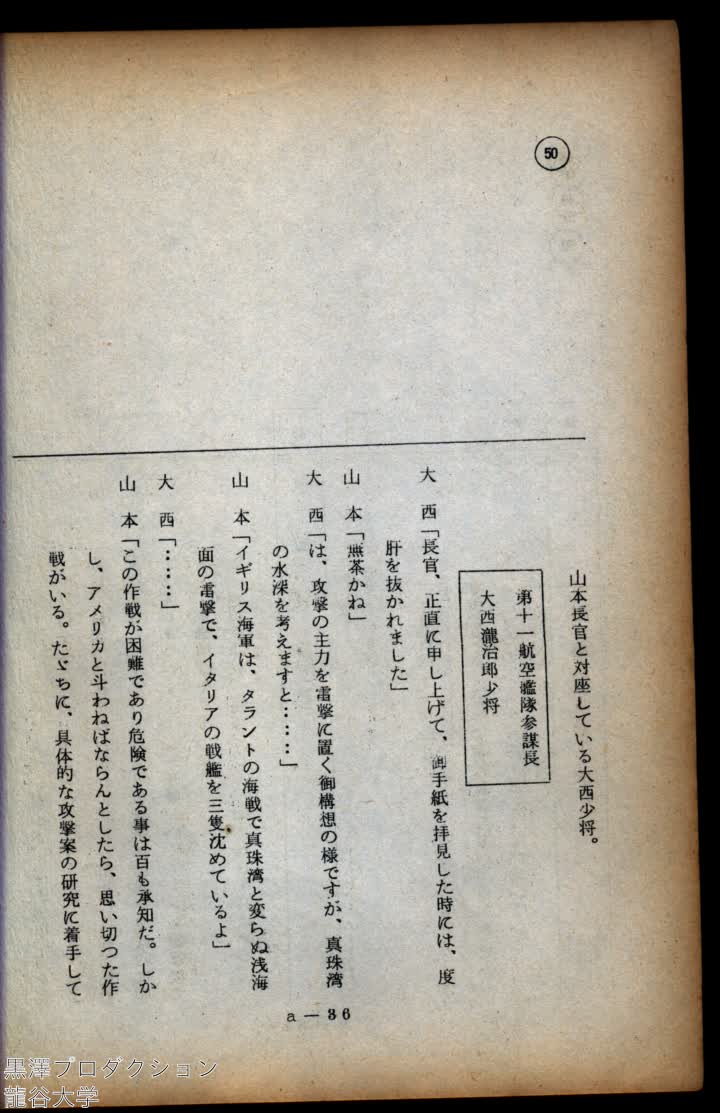 50
山本長官と対座している大西少将。
第十一航空艦隊参謀長
大西瀧治郎少将
大　西「長官、正直に申し上げて、御手紙を拝見した時には、度
肝を抜かれました」
山　本「無茶かね」
大　西「は、攻撃の主力を雷撃に置く御構想の様ですが、真珠湾
の水深を考えますと……」
山　本「イギリス海軍は、タラントの海戦で真珠湾と変らぬ浅海
面の雷撃で、イタリアの戦艦を三隻沈めているよ」
大　西「……」
山　本「この作戦が困難であり危険である事は百も承知だ。しか
し、アメリカと斗わねばならんとしたら、思い切つた作
戦がいる。たゞちに、具体的な攻撃案の研究に着手して
a — 36
黒澤プロダクション
龍谷大学